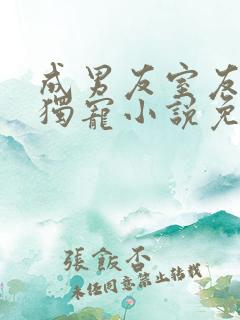 成男友室友
獨寵小說免
張飯否
未经同意禁止转载